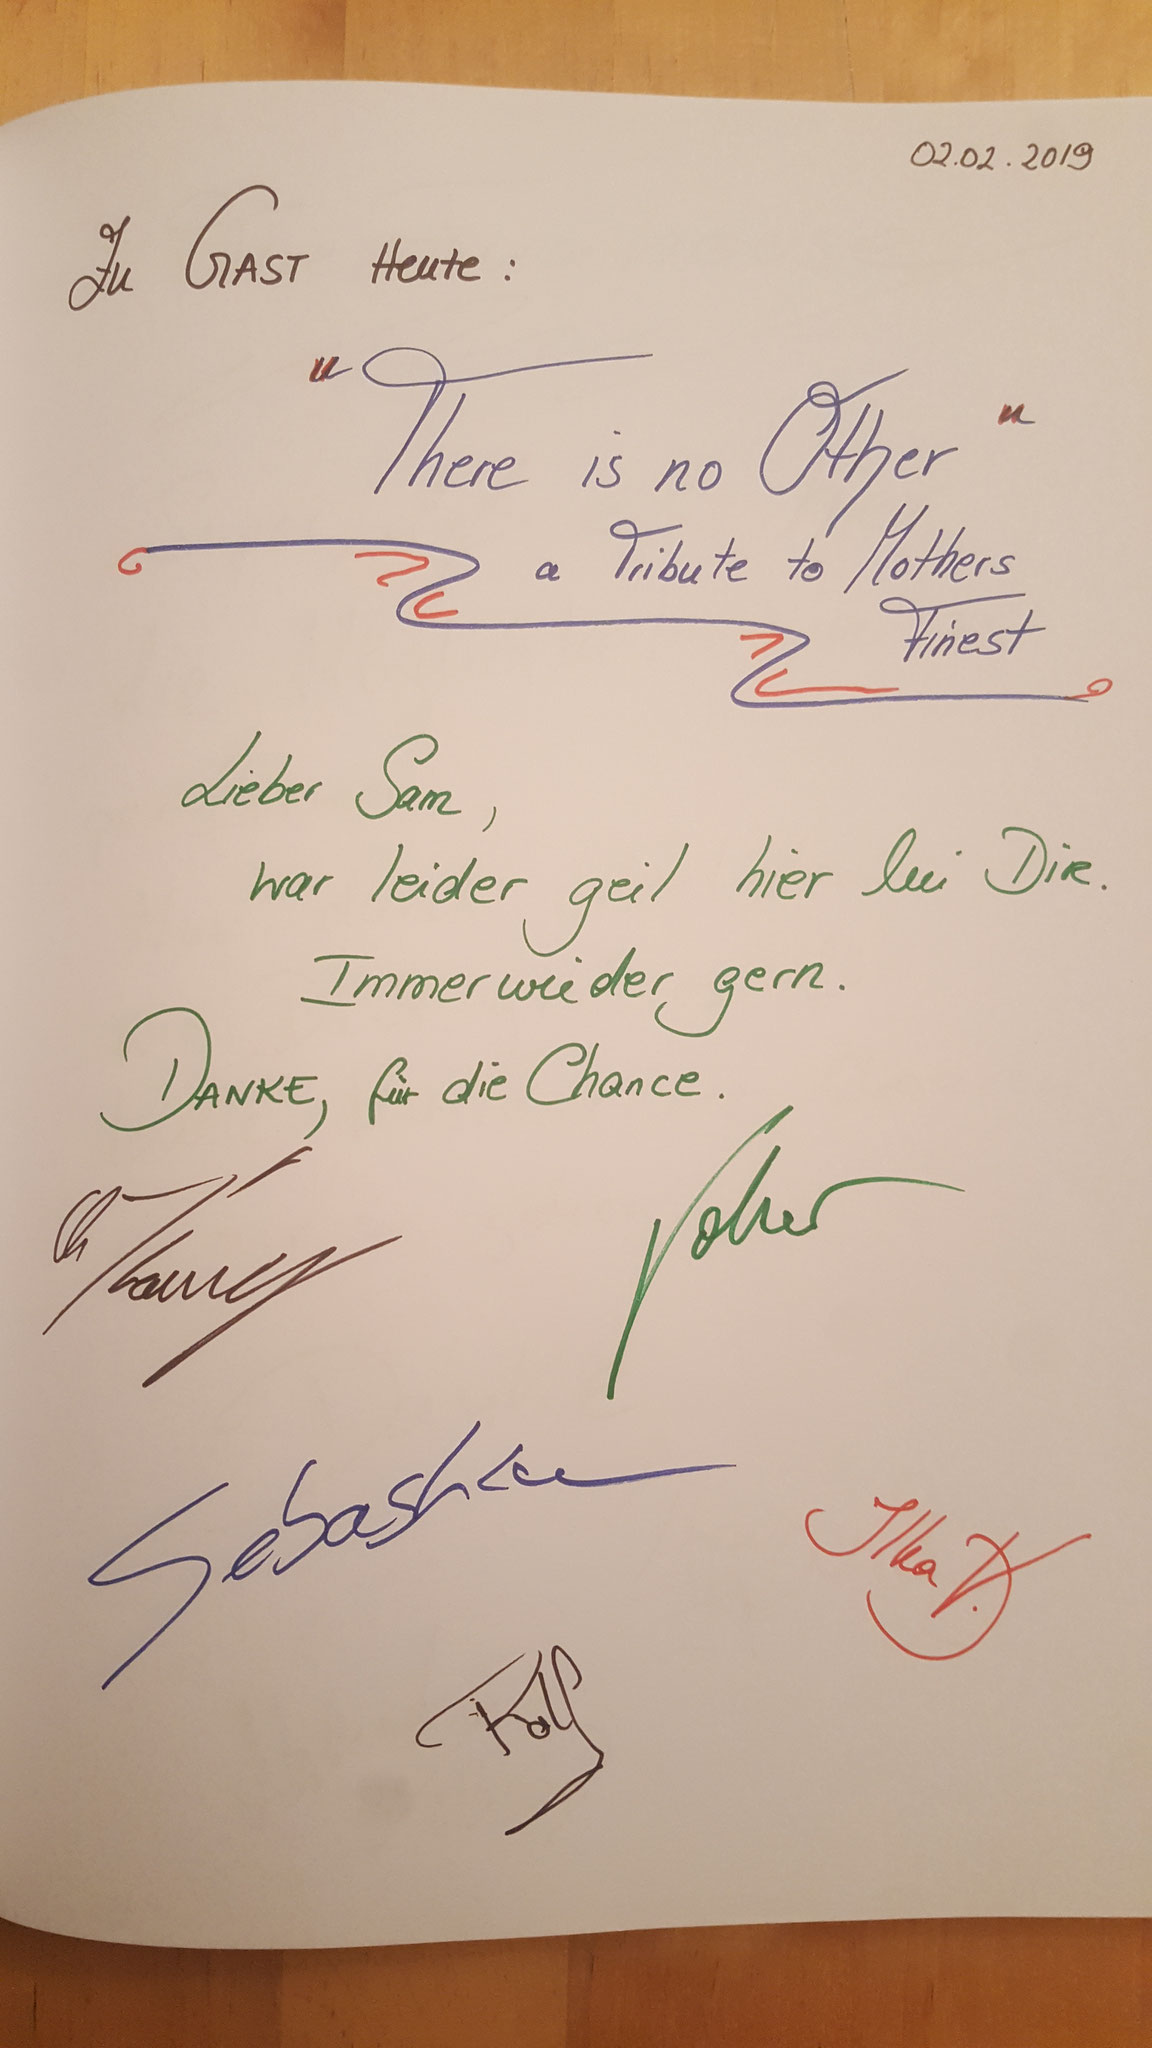 02.02.2019
Zu GAST Heute:
"There is no Other"
a Tribute to Mothers
Finest
Lieber Sam,
war leider geil hier bei Dir.
Immer wieder gern.
DANKE, für die Chance.
Volker
Sebastian
Ilka
Rolf